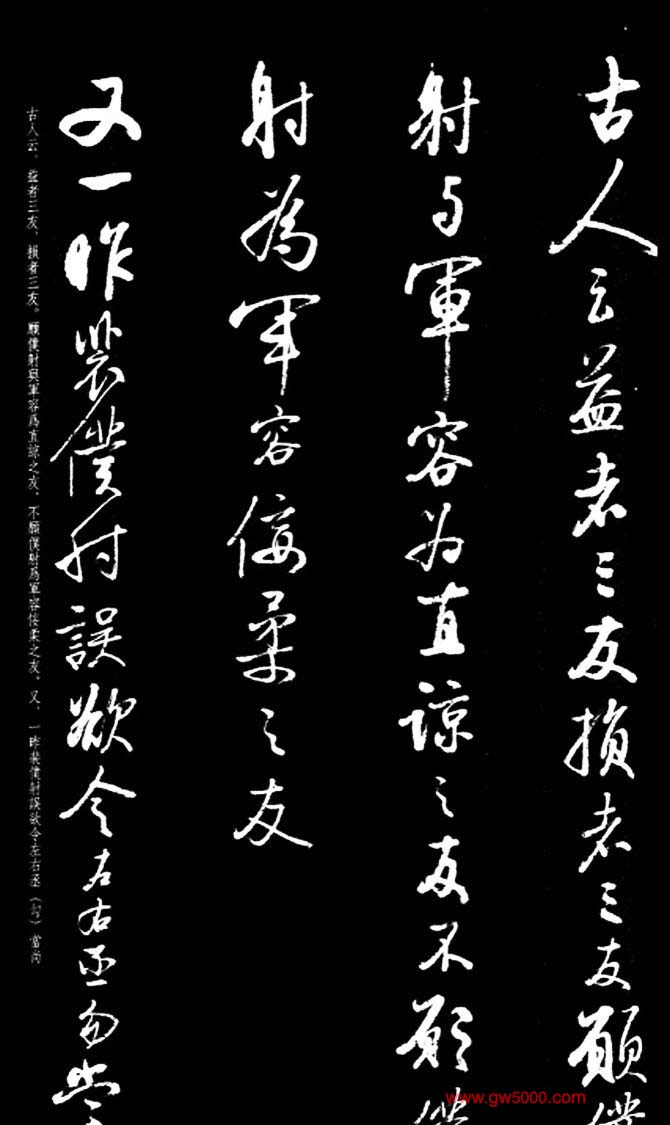 古人云益者三友損者三友願僕
射與軍容為直諒之友不願僕
射為軍容佞柔之友
又一昨裴僕射誤欲令左右丞勾當
古人云。益者三友，損者三友。願僕射與軍容爲直諒之友，不願僕射爲軍容佞柔之友。又，一昨裴僕射誤欲令左右丞（勾）當尚
www.gw5000.com